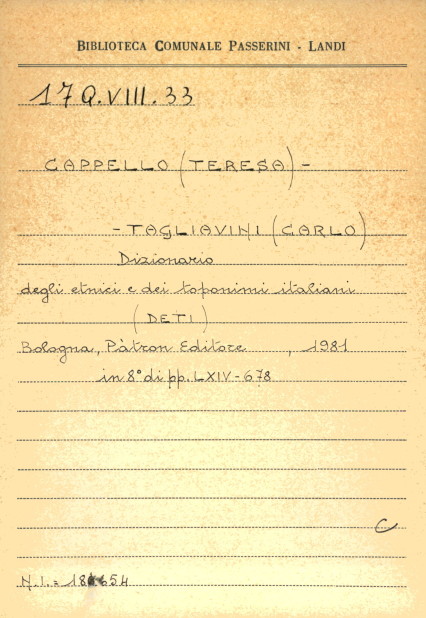 BIBLIOTECA COMUNALE PASSERINI - LANDI
17 Q.VIII.33
CAPPELLO (TERESA) -
- TAGLIAVINI (CARLO)
Dizionario
degli etnici e dei toponimi italiani
(DETI)
Bologna, Pàtron Editore , 1981
in 8° di pp. LXIV-678
C
N.I. =